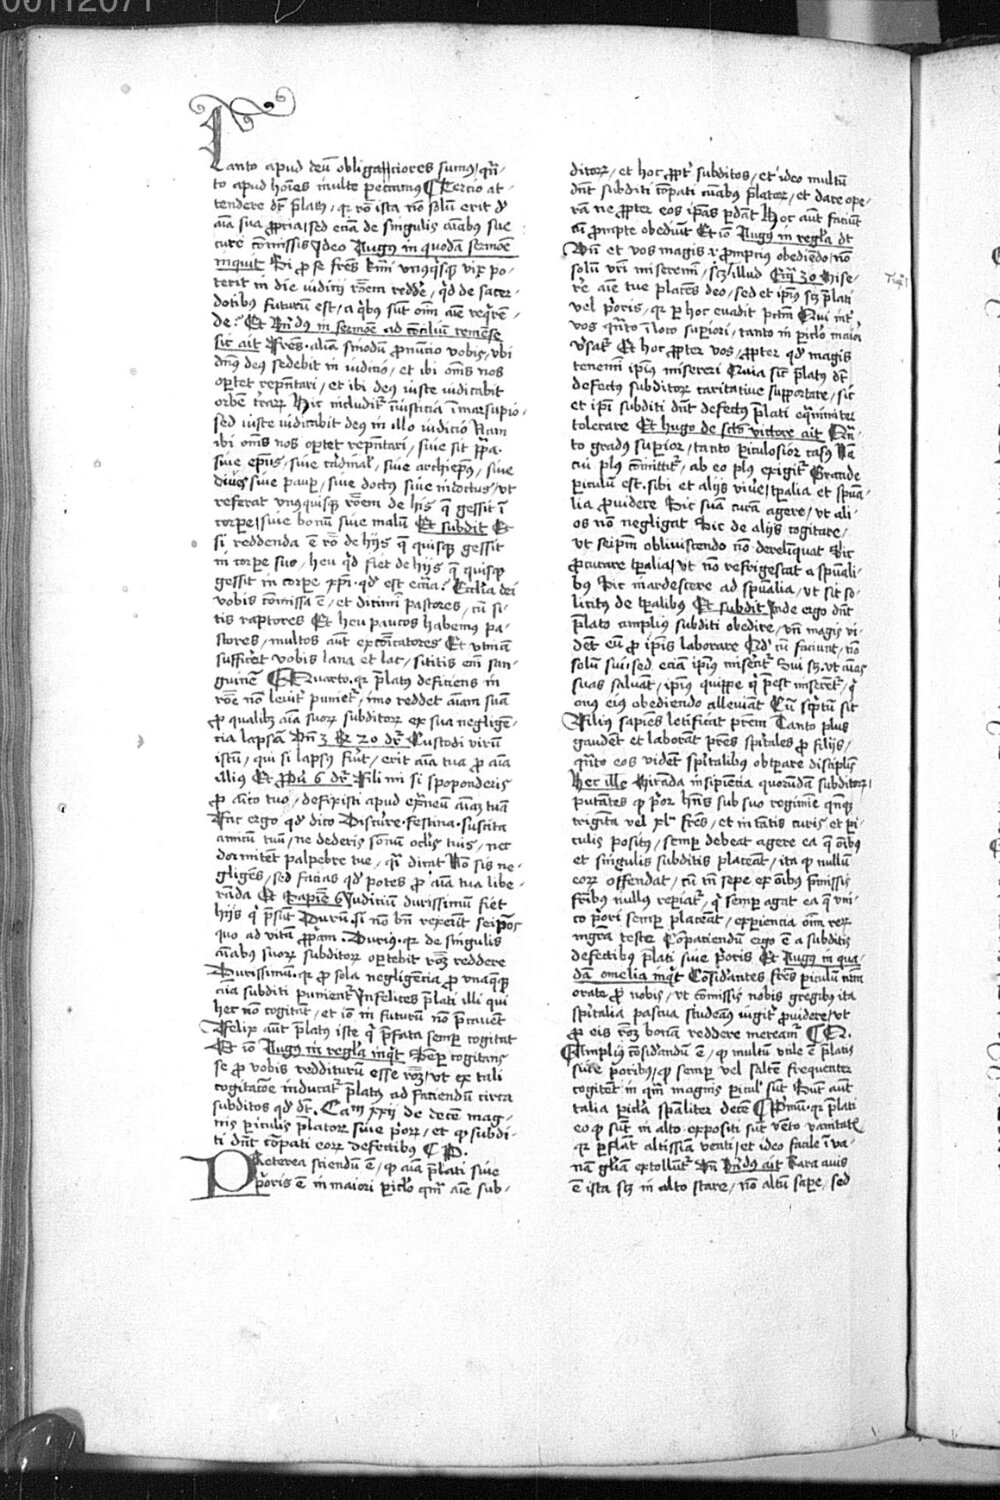 00112071
Tanto apud deū obligaciores sumus / qn̄-
to apud hoīes inulte peccamus ₵ Tercio at-
tendere dr̄ p̄latus / qꝛ rō ista nō solū erit de
aīa sua ꝓpria / sed eciā de singulis aīabus sue
cure cōmissis / Ideo Augꝯ in quodā sermōe
inquit Si ꝓ se fr̄es kmi vnusqꝫ vix po-
terit in die iudicij rōem redde᷑ / qd de sacer-
dotibus futurum est / a qbꝫ sūt oīm aīe reqre-
de? Et Bn̄dus in sermōe ad cōciliū remēse
sic ait Fr̄es aliam sinodū ꝓnuncio vobis / vbi
dn̄us deus sedebit in iudicio / et ibi om̄s nos
oportet rep̄ntari / et ibi deus iuste iudicabit
orbē t᷑rarꝫ Hic includit᷑ iniusticia ī marsupio /
sed iuste iudicabit deus in illo iudicio Nam
ibi om̄s nos oportet rep̄ntari / siue sit pp̄a
siue ep̄us / siue cardinal᷑ / siue archiep̄us / siue
diues siue paup̄ / siue doctus siue indoctus / vt
referat vnusqꝫ rōem de his q̄ gessit ī
corpe / siue bonū siue malū Et subdit Et
si reddenda ē rō de hijs q̄ quisqꝫ gessit
in corpe suo / heu qd fiet de hijs q̄ quisqꝫ
gessit in corpe xp̄i qd est ecc̄ia? Ecc̄lia dei
vobis cōmissa ē / et dicimi pastores / cū si-
tis raptores Et heu paucos habemus pa-
stores / multos aūt excōicatores Et vtinam
sufficeret vobis lana et lac / sititis em̄ san-
guinē ₵ Quarto qꝛ p̄latus deficiens in
rōe nō leuit᷑ puniet᷑ / imo reddet aīam suā
ꝓ qualibꝫ aīa suorꝫ subditorꝫ ex sua negligē-
cia lapsa Vn̄ 3 R 20 dr̄ Custodi virū
istū / qui si lapsus fu᷑it / erit aīa tua ꝓ aīa
illius Et ꝓū 6 dr̄ Fili mi si spoponderis
ꝓ aīco tuo / defixisti apud ext̄neū aīam tuā
Fac ergo qd dico Discurre festina suscita
amicū tuū / ne dederis somnū oculis tuis / nec
dormitēt palpebre tue / q̄si dicat Nō sis ne-
gligēs / sed facias qd potes ꝓ aīa tua libe-
randa Et Sapiē 6 Iudiciū durissimū fiet
hijs q̇ p̄sūt Durū si nō bn̄ rexerūt seip̄os
quo ad vitā ꝓpam Durius qꝛ de singulis
aīabus suorꝫ subditorꝫ oportebit rōeꝫ reddere
Durissimū qꝛ ꝓ sola negligēcia ꝓ vnaqꝫ
aīa subditi punient᷑ Infelices p̄lati illi qui
hec nō cogitāt / et io in futurū nō p̄cauent
Felix aūt p̄latus iste q̇ p̄fata semper cogitat
Et io Augꝯ in regl̄a inqt Semp cogitans
se ꝓ vobis redditurū esse rōeꝫ / vt ex tali
cogitacōe inducat᷑ p̄latus ad faciendū circa
subditos qd dꝫ Cam xxij de decē mag-
nis periculis p̄latorꝫ siue p̄orꝫ / et qꝫ subdi-
ti dn̄t cōpati eorꝫ defectibus ₵ P.
Preterea sciendū ē / ꝙ aīa p̄lati siue
p̄oris ē in maiori piclo qm̄ aīe sub-
ditorꝫ / et hoc ꝓpt᷑ subditos / et ideo multū
dn̄t subditi cōpati aīabus p̄latorꝫ / et dare ope-
rā ne ꝓpter eos ip̄as p̄dāt Hoc aūt faciūt
cū ꝓmpte obediūt Et io Augꝯ in regl̄a dt
Vn̄ et vos magis ꝓmpcius obediēdo / nō
solū vr̄i miseremī / sꝫ illud Eccī 30 Mise-
re᷑ aīe tue placēs deo / sed et ip̄ius sꝫ p̄lati
vel p̄oris / qꝛ p hoc euadit pctm̄ Qui int᷑
vos qn̄to ī loco supiori / tanto in piclo maiori
v᷑sat᷑ Et hoc ꝓpter vos / ꝓpter qd magis
tenemī ip̄ius misereri Quia sic p̄latus dꝫ
defectus subditorꝫ caritatiue supportare / sic
et ip̄i subditi dn̄t defectus p̄lati equanimiter
tolerare Et Hugo de scō victore ait Qn̄-
to gradus supior / tanto piculosior casus Na
cui plus cōmittit᷑ / ab eo plus exigit᷑ Grande
piculū est sibi et alijs viue᷑ / tp̄alia et spūa-
lia ꝓuidere Sic suā curā agere / vt ali-
os nō negligat Sic de alijs cogitare /
vt seipm̄ obliuiscendo nō derelinquat Sic
ꝓcurare tp̄alia / vt nō refrigescat a spūali-
bꝫ Sic inardescere ad spūalia / vt sit so-
licitus de tp̄alibus Et subdit Inde ergo dn̄t
p̄lato amplius subditi obedire / vn̄ magis vi-
dēt eū ꝓ ip̄is laborare Qd cū faciunt / nō
solū sui / sed eciā ip̄ius miserēt᷑ Sui sꝫ vt aīas
suas saluāt / ip̄ius quippe q̇ p̄est miserēt᷑ / q̇
onus eius obediendo alleuiāt Cū sc̄ptū sit
Filius sapiēs letificat prem Tanto plus
gaudēt et laborāt pr̄es spūales ꝓ filijs /
qn̄to eos vidēt spūalibus obtp̄are disciplīs
Hec ille Miranda insipiēcia quorundā subditorꝫ
putātes ꝙ p̄or hn̄s sub suo regimīe qn̄qꝫ
triginta vel xl᷑ fr̄es / et in tātis curis et pi-
culis positus / semper debeat agere ea q̄ oībus
et singulis subditis placeāt / ita ꝙ nullū
eorꝫ offendat / cū tn̄ sepe ex oībus p̄missis
fr̄ibus nullus repiat᷑ / q̇ semper agat ea q̄ vni-
co p̄ori semper placeāt / expiencia oīm rerꝫ
mgr̄a teste Cōpatiendū ergo ē a subditis
defectibus p̄lati siue p̄oris Et Augꝯ in qua-
dā omelia inqt Cōsidantes fr̄es piculū nr̄m
orate ꝓ nobis / vt cōmissis nobis gregibus ita
spūalia pascua studeāꝫ iugit᷑ ꝓuidere / vt
ꝓ eis rōeꝫ bonam reddere mereamᷣ ₵ Q.
Amplius cōsidandū ē / ꝙ multū vtile ē p̄latis
siue p̄oribus / ꝙ semper vel saltē frequenter
cogitent in qm̄ magnis picul᷑ sūt Sunt aūt
talia picla spāliter decē ₵ Pmū qꝛ p̄lati
eo ꝙ sūt in alto expositi sūt vēto vanitatꝭ
qꝛ pflāt altissima venti / et ideo facile ī va-
nā gl̄iā extollūt᷑ Vn̄ Bn̄dus ait Rara auis
ē ista sꝫ in alto stare / nō altū sape / sed